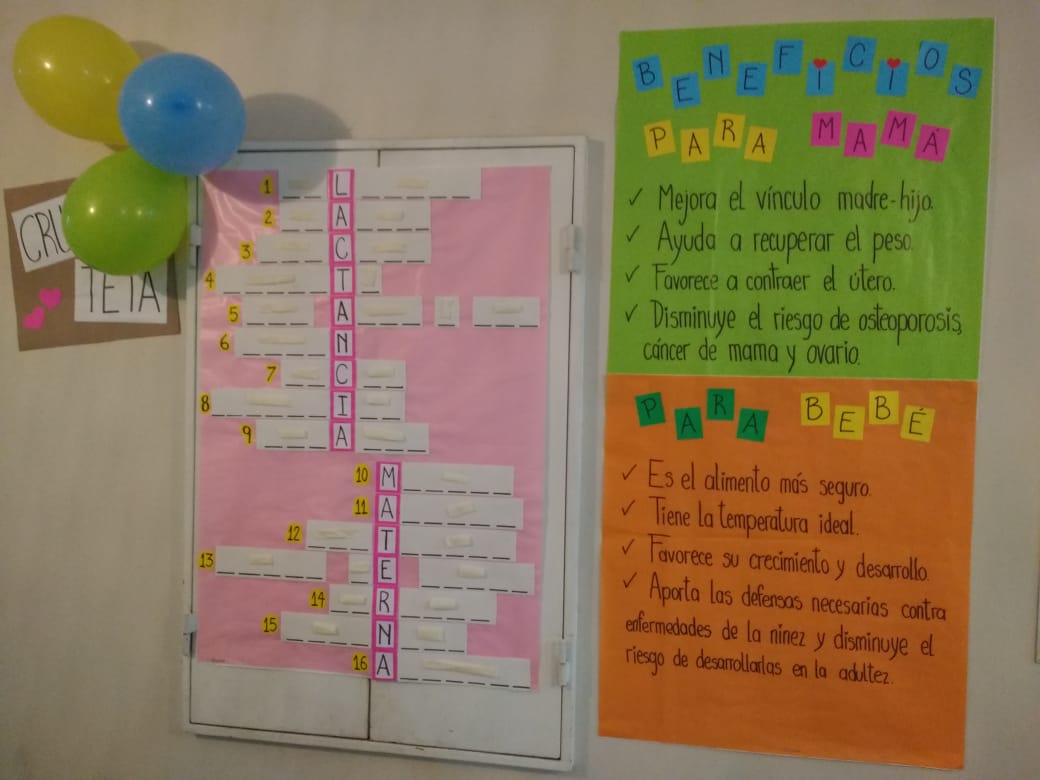 CRU
TETA
1 L
2 A
3 C
4 T
5 A
6 N
7 C
8 I
9 A
10 M
11 A
12 T
13 E
14 R
15 N
16 A
BENEFICIOS
PARA MAMÁ
✓ Mejora el vínculo madre-hijo.
✓ Ayuda a recuperar el peso.
✓ Favorece a contraer el útero.
✓ Disminuye el riesgo de osteoporosis,
cáncer de mama y ovario.
PARA BEBÉ
✓ Es el alimento más seguro.
✓ Tiene la temperatura ideal.
✓ Favorece su crecimiento y desarrollo.
✓ Aporta las defensas necesarias contra
enfermedades de la ninez y disminuye el
riesgo de desarrollarlas en la adultez.